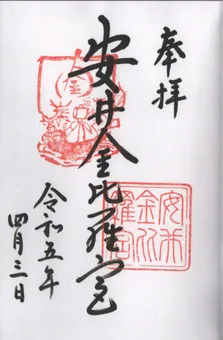 奉拝
安井金比羅宮
令和五年
四月三日
安井
金比
羅宮